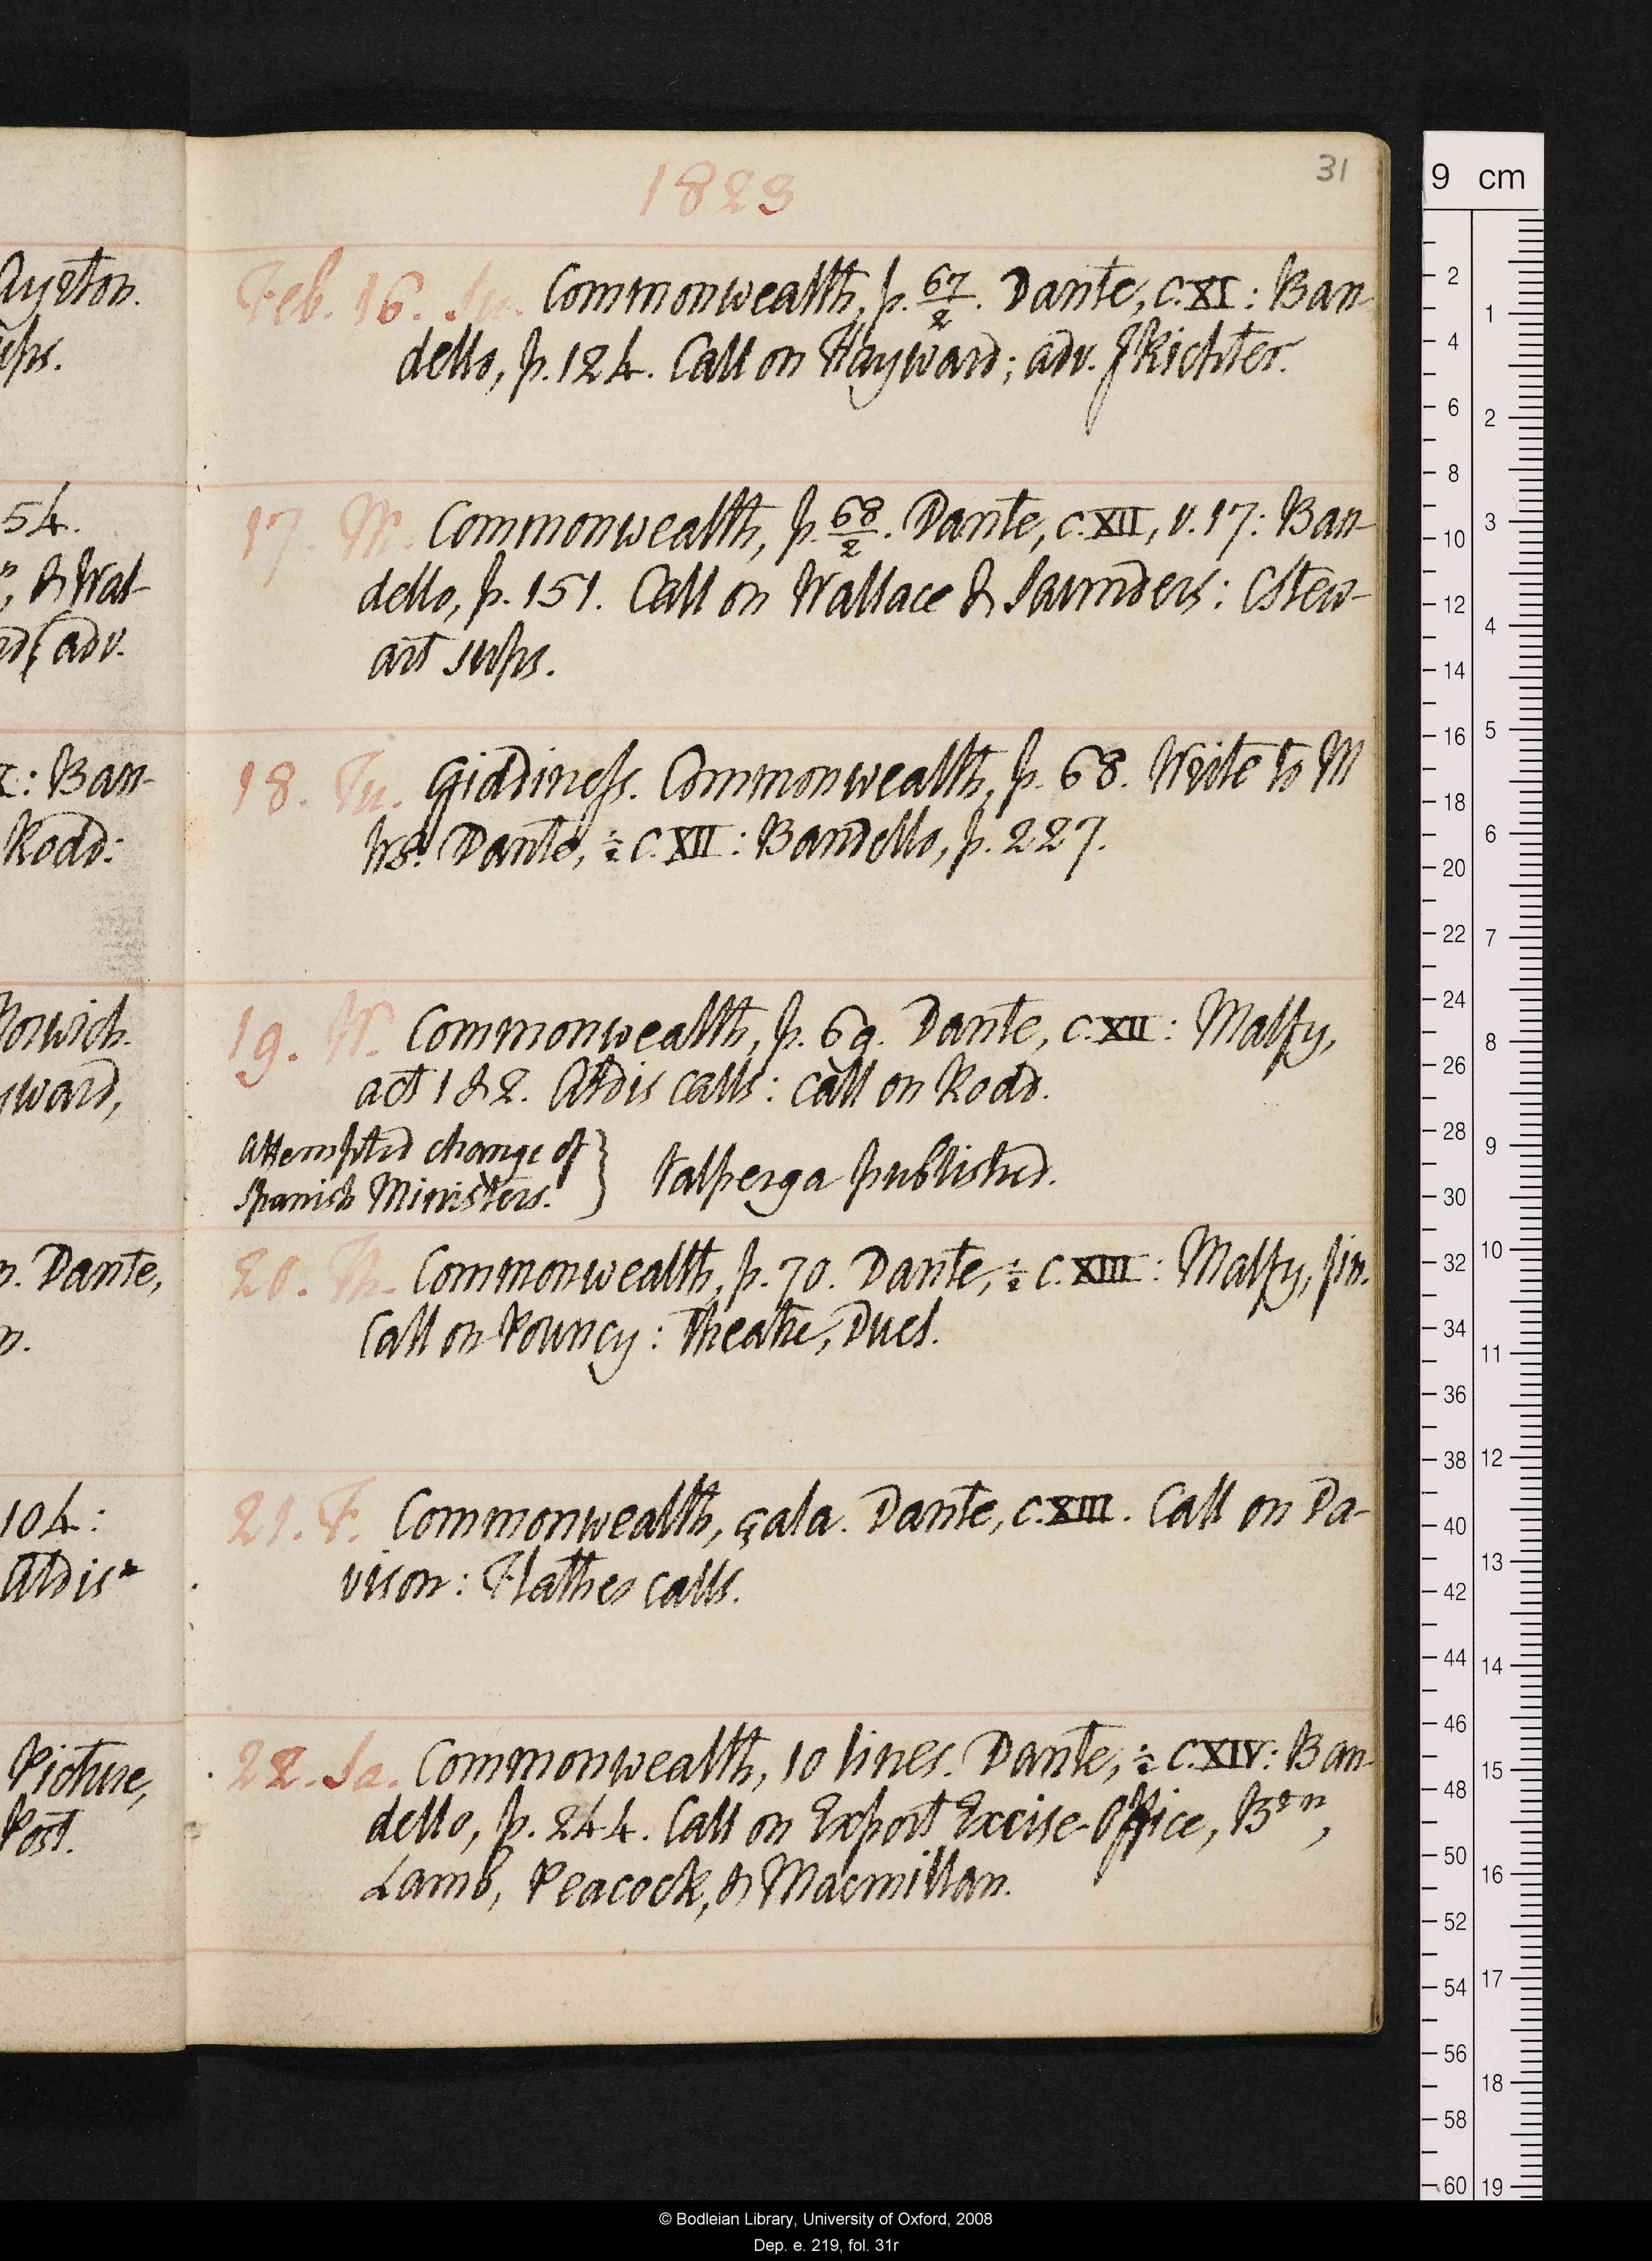 1823
31
Feb. 16. Su. Commonwealth, p. 67/2. Dante, c. XI: Ban-
dello, p. 124. Call on Hayward; adv. JRichter.
17. M. Commonwealth, p. 68/2. Dante, c. XII, v. 17: Ban-
dello, p. 151. Call on Wallace & Saunders: CStew-
art sups.
18. Tu. Giddiness. Commonwealth, p. 68. Write to M
WS. Dante, ½ c. XII: Bandello, p. 227.
19. W. Commonwealth, p. 69. Dante, c. XII: Malfy,
act 1 & 2. Aldis calls: call on Rodd.
Attempted change of
Spanish Ministers. } Valperga published.
20. Th. Commonwealth, p. 70. Dante, ½ c. XIII: Malfy, fin.
Call on Pouncy: Theatre, Duel.
21. F. Commonwealth, çala. Dante, c. XIII. Call on Da-
vison: Flather calls.
22. Sa. Commonwealth, 10 lines. Dante, ½ c. XIV: Ban-
dello, p. 244. Call on Export Excise-Office, Bⁿ,
Lamb, Peacock, & Macmillan.
Ayrton.
sups.
54.
, & Wal-
adv.
: Ban-
Rodd:
Norwich.
yward,
Dante,
104:
Aldis*
Picture,
Post.
9 cm
2
4
6
8
10
12
14
16
18
20
22
24
26
28
30
32
34
36
38
40
42
44
46
48
50
52
54
56
58
60
1
2
3
4
5
6
7
8
9
10
11
12
13
14
15
16
17
18
19
© Bodleian Library, University of Oxford, 2008
Dep. e. 219, fol. 31r